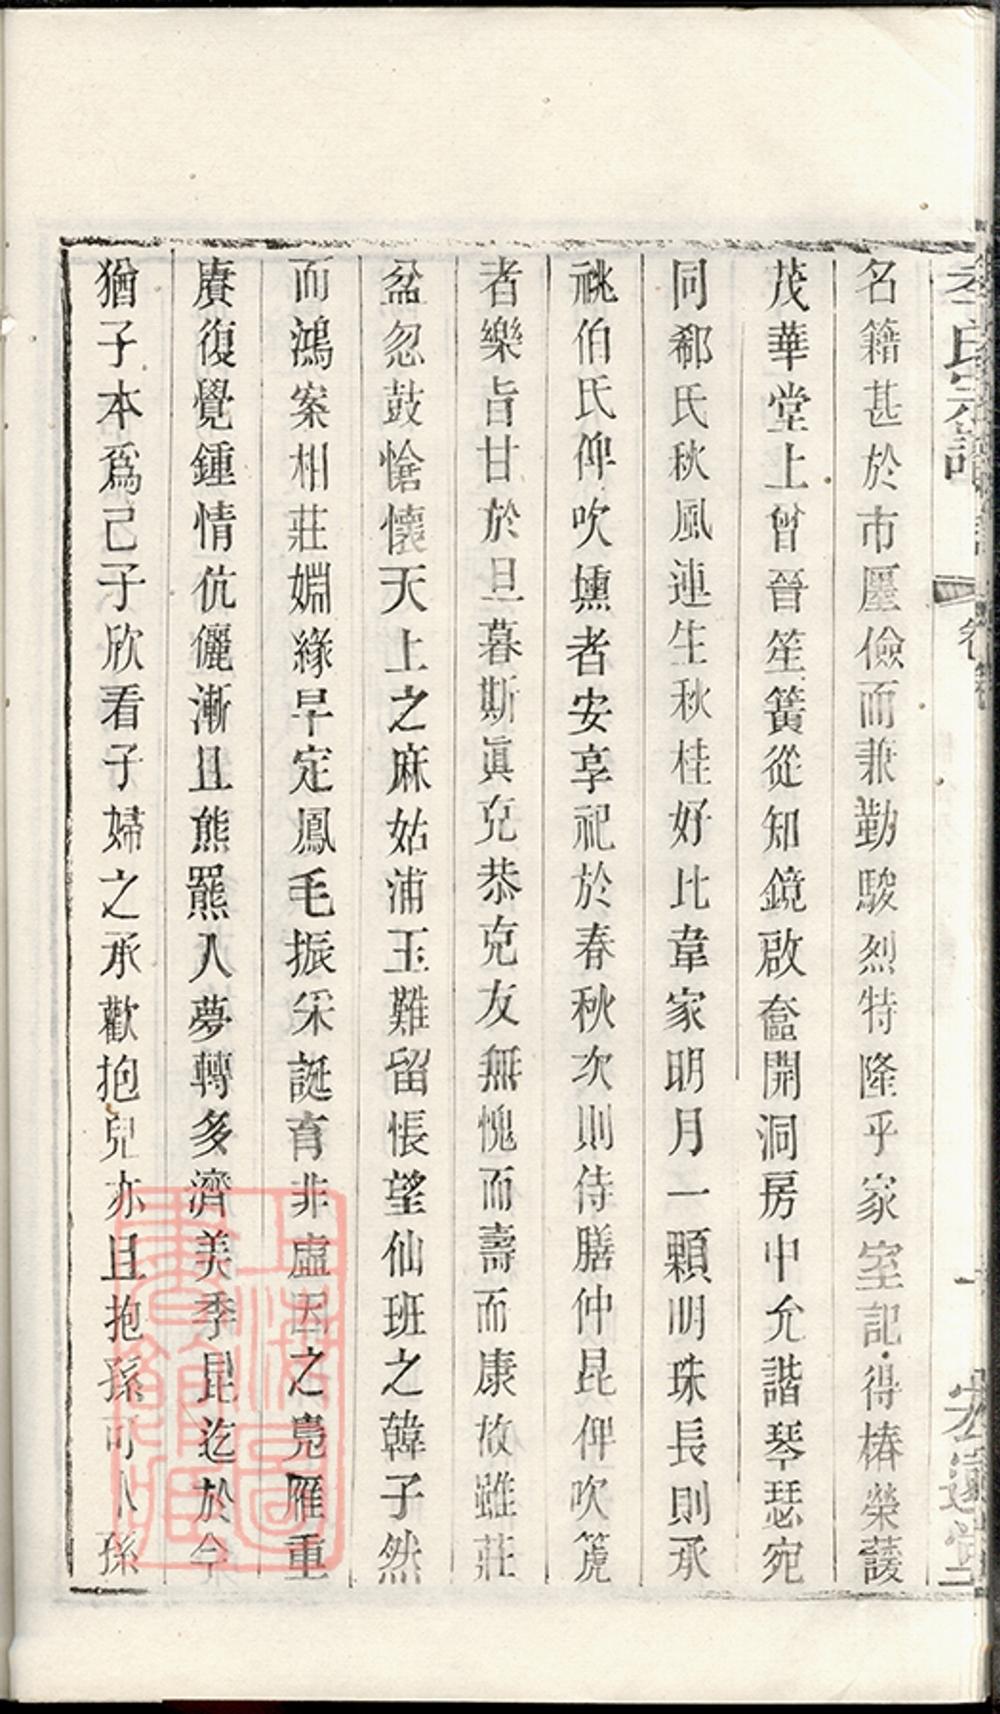 名籍甚於市廛儉而兼勤駿烈特隆乎家室記得椿榮護
茂華堂上曾晉笙簧從知鏡啟奩開洞房中允諧琴瑟宛
同郗氏秋風連生秋桂好比韋家明月一顆明珠長則承
祧伯氏俾吹壎者安享祀於春秋次則侍膳仲昆俾吹篪
者樂旨甘於旦暮斯眞克恭克友無愧而壽而康故雖莊
盆忽鼓愴懷天上之麻姑浦玉難留悵望仙班之韓子然
而鴻案相莊姻緣早定鳳毛振采誕育非虛因之鳧雁重
賡復覺鍾情伉儷漸且熊羆入夢轉多濟美季昆迄於今
猶子本爲己子欣看子婦之承歡抱兒亦且抱孫可卜孫
上海圖書館藏